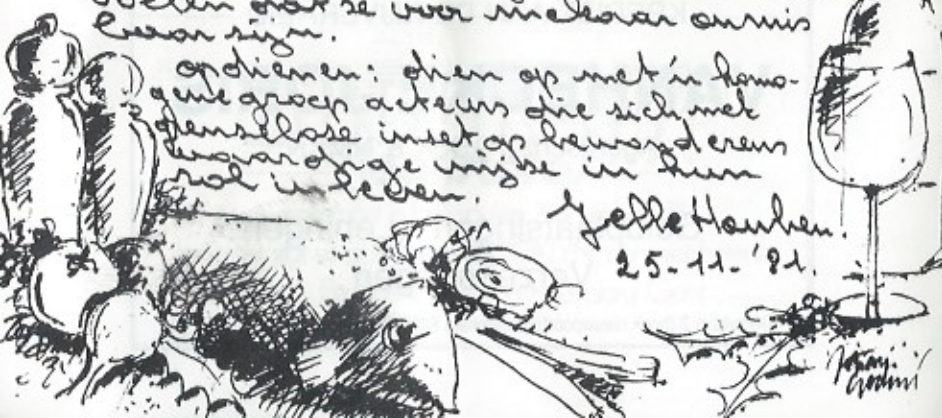 voelen dat se voor mekaar onmis
baar sijn.
opdienen: dien op met 'n homo-
gene groep acteurs die sich met
grenselose inset op bewonderens
waardige wijse in hun
rol in leven.
Jelle Houben.
25-11-'81.